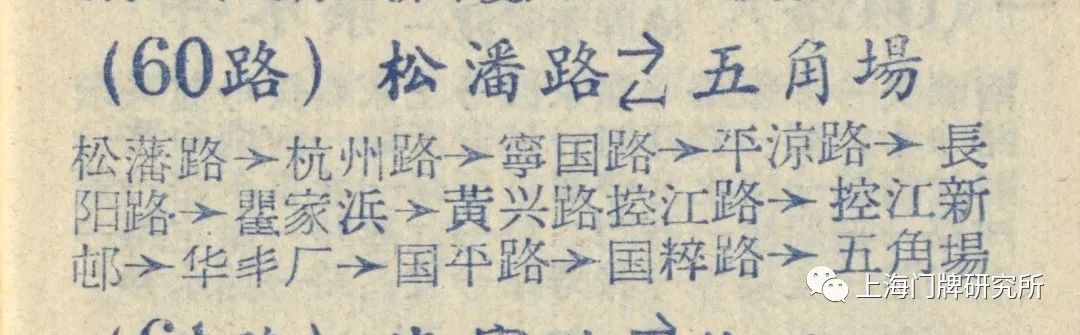 (60路) 松潘路⇄五角場
松藩路→杭州路→寧国路→平涼路→長
阳路→瞿家浜→黄兴路控江路→控江新
邨→华丰厂→国平路→国粹路→五角場
上海门牌研究所